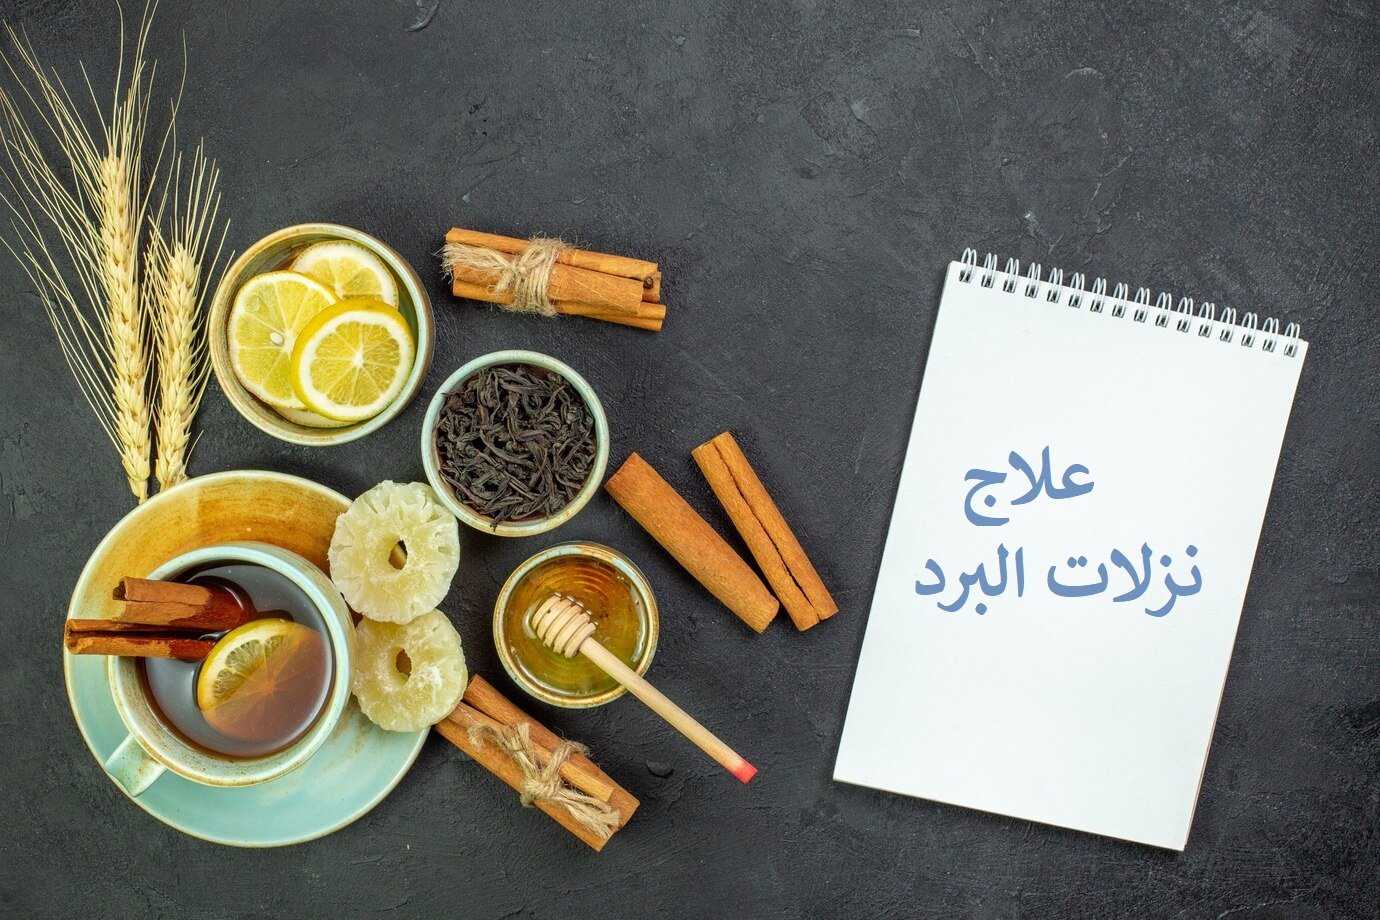 علاج
نزلات البرد